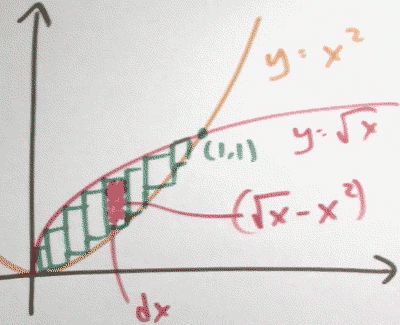 y = x²
y = √x
(1,1)
(√x - x²)
dx